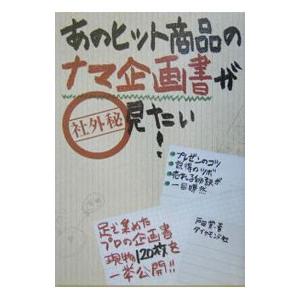 あのヒット商品の
ナマ企画書が
社外秘
見たい!
・プレゼンのコツ
・説得のツボ
・売れる仕掛けが
一目瞭然
足で集めた
プロの企画書
現物120枚を
一挙公開!!
戸田覚・著
ダイヤモンド社